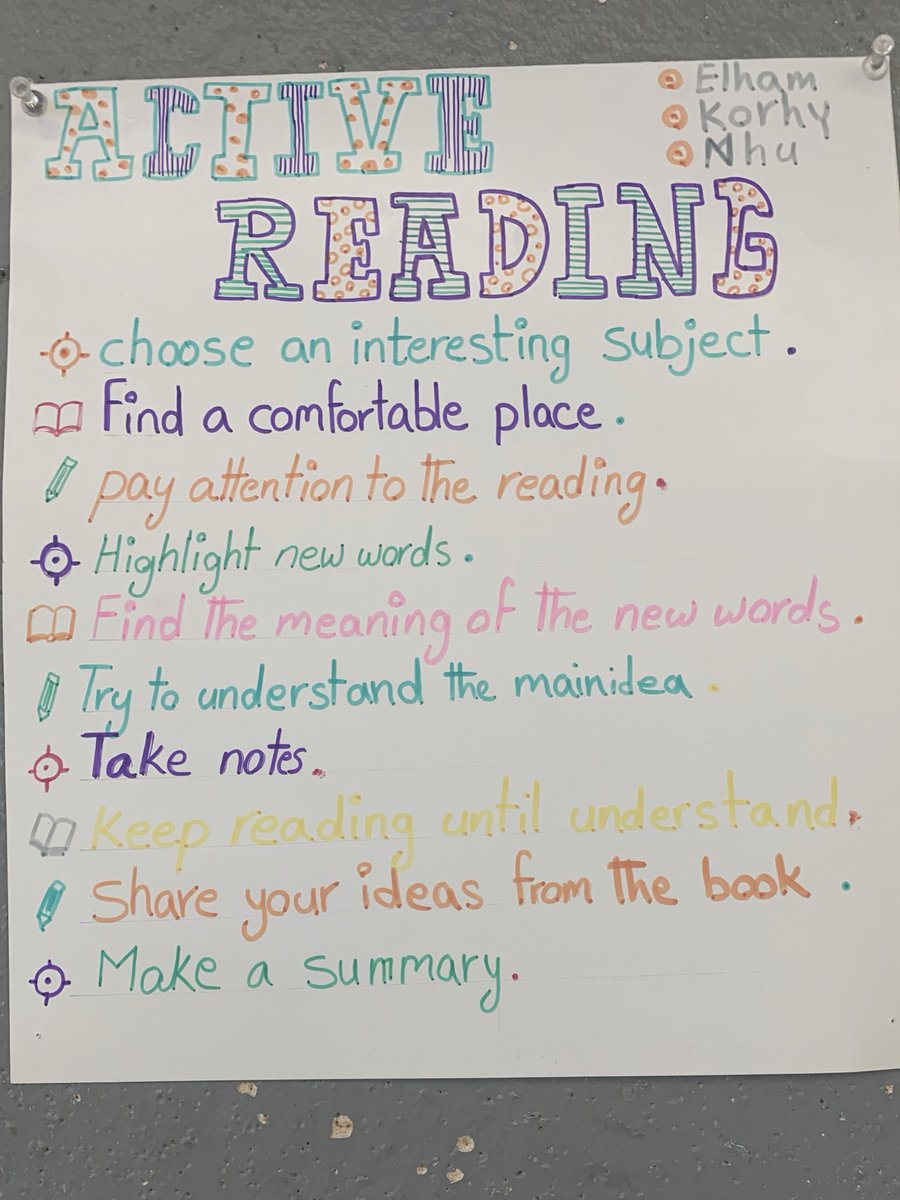 ACTIVE
READING
Elham
Korhy
Nhu
choose an interesting subject.
Find a comfortable place.
pay attention to the reading.
Highlight new words.
Find the meaning of the new words.
Try to understand the mainidea.
Take notes.
Keep reading until understand.
Share your ideas from the book.
Make a summary.